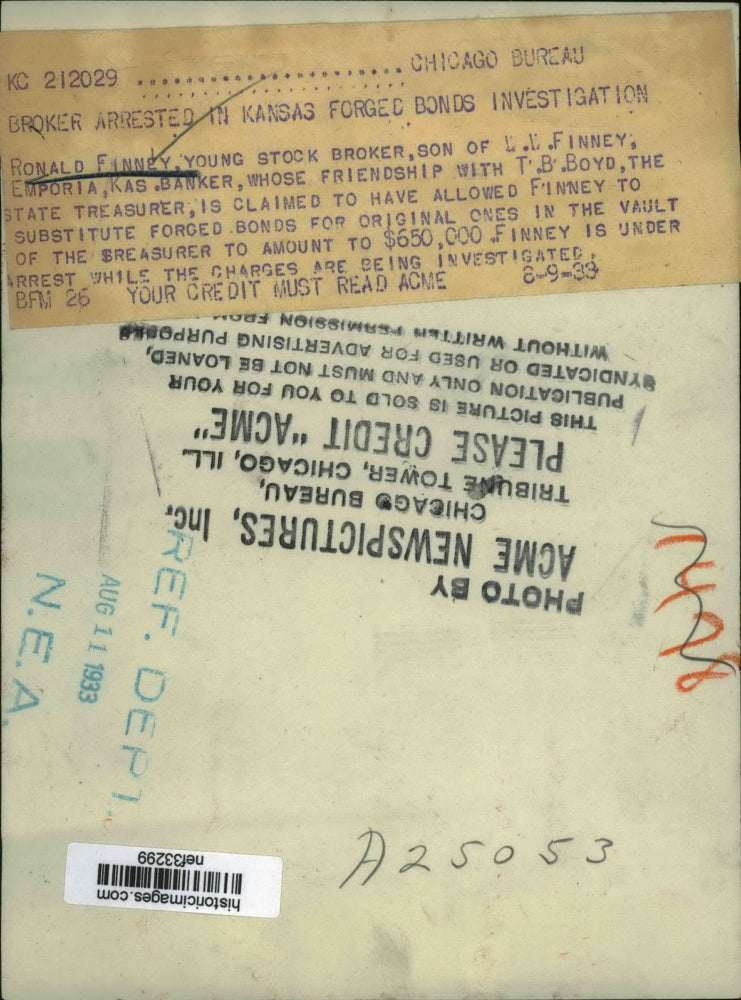 KC 212029 ........................ CHICAGO BUREAU
BROKER ARRESTED IN KANSAS FORGED BONDS INVESTIGATION
RONALD FINNEY, YOUNG STOCK BROKER, SON OF W.W. FINNEY,
EMPORIA, KAS. BANKER, WHOSE FRIENDSHIP WITH T.B. BOYD, THE
STATE TREASURER, IS CLAIMED TO HAVE ALLOWED FINNEY TO
SUBSTITUTE FORGED BONDS FOR ORIGINAL ONES IN THE VAULT
OF THE SREASURER TO AMOUNT TO $650,000. FINNEY IS UNDER
ARREST WHILE THE CHARGES ARE BEING INVESTIGATED.
BFM 26 YOUR CREDIT MUST READ ACME 8-9-33
PHOTO BY
ACME NEWSPICTURES, Inc.
CHICAGO BUREAU,
TRIBUNE TOWER, CHICAGO, ILL.
PLEASE CREDIT "ACME"
THIS PICTURE IS SOLD TO YOU FOR YOUR
PUBLICATION ONLY AND MUST NOT BE LOANED,
SYNDICATED OR USED FOR ADVERTISING PURPOSES
WITHOUT WRITTEN PERMISSION FROM
REF. DEPT.
AUG 11 1933
N.E.A.
A25053
historicimages.com
nef33299